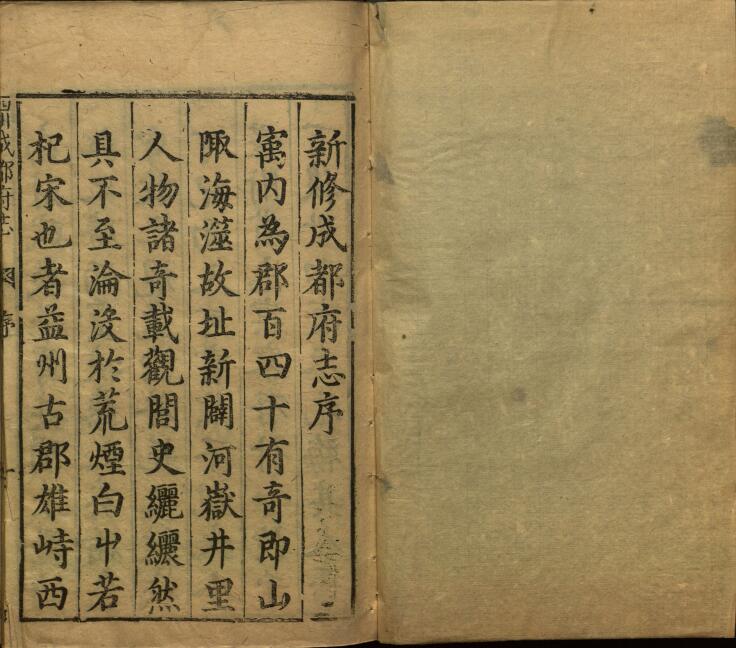 新修成都府志序
寓内為郡百四十有奇即山
陬海澨故址新闢河嶽井里
人物諸奇載觀閭史纚纚然
具不至淪没於荒煙白屮若
杞宋也者益州古郡雄峙西
成都府志
序